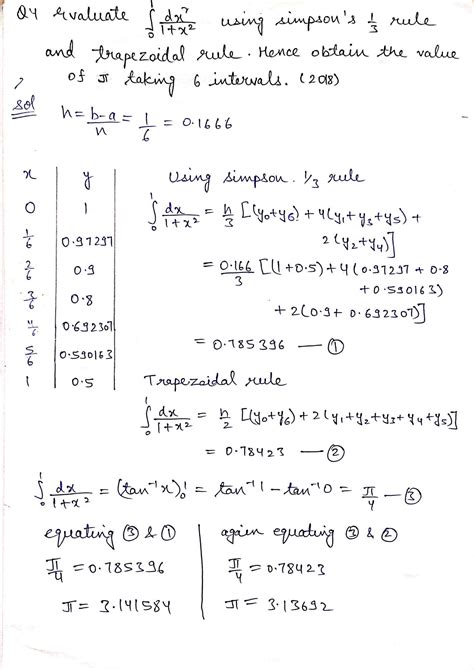 Q4 Evaluate ∫₀¹ dx/1+x² using simpson's 1/3 rule
and trapezoidal rule. Hence obtain the value
of π taking 6 intervals. (2018)
sol
h = b-a/n = 1/6 = 0.1666
x y
0 1
1/6 0.97297
2/6 0.9
3/6 0.8
4/6 0.692307
5/6 0.590163
1 0.5
Using simpson. 1/3 rule
∫₀¹ dx/1+x² = h/3 [(y₀+y₆) + 4(y₁+y₃+y₅) +
2(y₂+y₄)]
= 0.166/3 [(1+0.5)+4(0.97297+0.8
+0.590163)
+ 2(0.9+0.692307)]
= 0.785396 — ①
Trapezoidal rule
∫₀¹ dx/1+x² = h/2 [(y₀+y₆)+2(y₁+y₂+y₃+y₄+y₅)]
= 0.78423 — ②
∫₀¹ dx/1+x² = (tan⁻¹x)₀¹ = tan⁻¹1 - tan⁻¹0 = π/4 — ③
equating ③ & ①
π/4 = 0.785396
π = 3.141584
again equating ③ & ②
π/4 = 0.78423
π = 3.13692